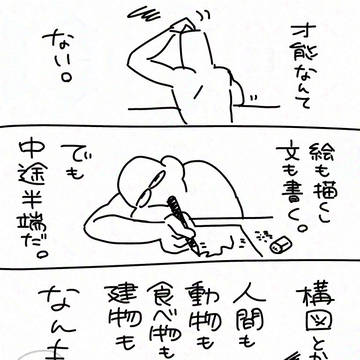 才能なんて
ない。
絵も描くし
文も書く。
でも
中途半端だ。
構図とか
人間も
動物も
食べ物も
建物も